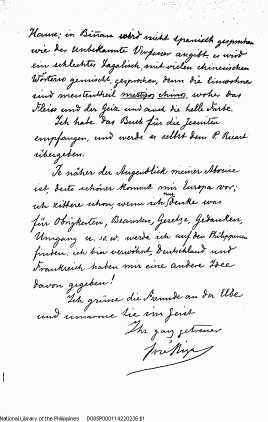 Hause; in Biñan wird nicht spanisch gesprochen
wie der Unbekannte Verfasser angibt; es wird
ein schlechtes Tagalisch, mit vielen chinesischen
Wörtern gemischt, gesprochen, denn die Einwohner
sind meistentheil mestizos chinos, woher das
Fleiss und der Geiz und auch die helle Farbe.
Ich habe das Buch für die Jesuiten
empfangen, und werde es selbst dem P. Ricart
übergeben.
Je näher der Augenblick meiner Abreise
ist, desto schöner kommt mir Europa vor;
ich zittere schon, wenn ich denke was
für Obrigkeiten, Beamten, Gesetze, Gedanken,
Umgang u. s. w. werde ich auf den Philippinen
finden; ich bin verwöhnt, Deutschland und
Frankreich haben mir eine andere Idee
davon gegeben!
Ich grüsse die Freunde an der Elbe
und umarme Sie im Geist
Ihr ganz getreuer
José Rizal
National Library of the Philippines D08SP000114220236.tif